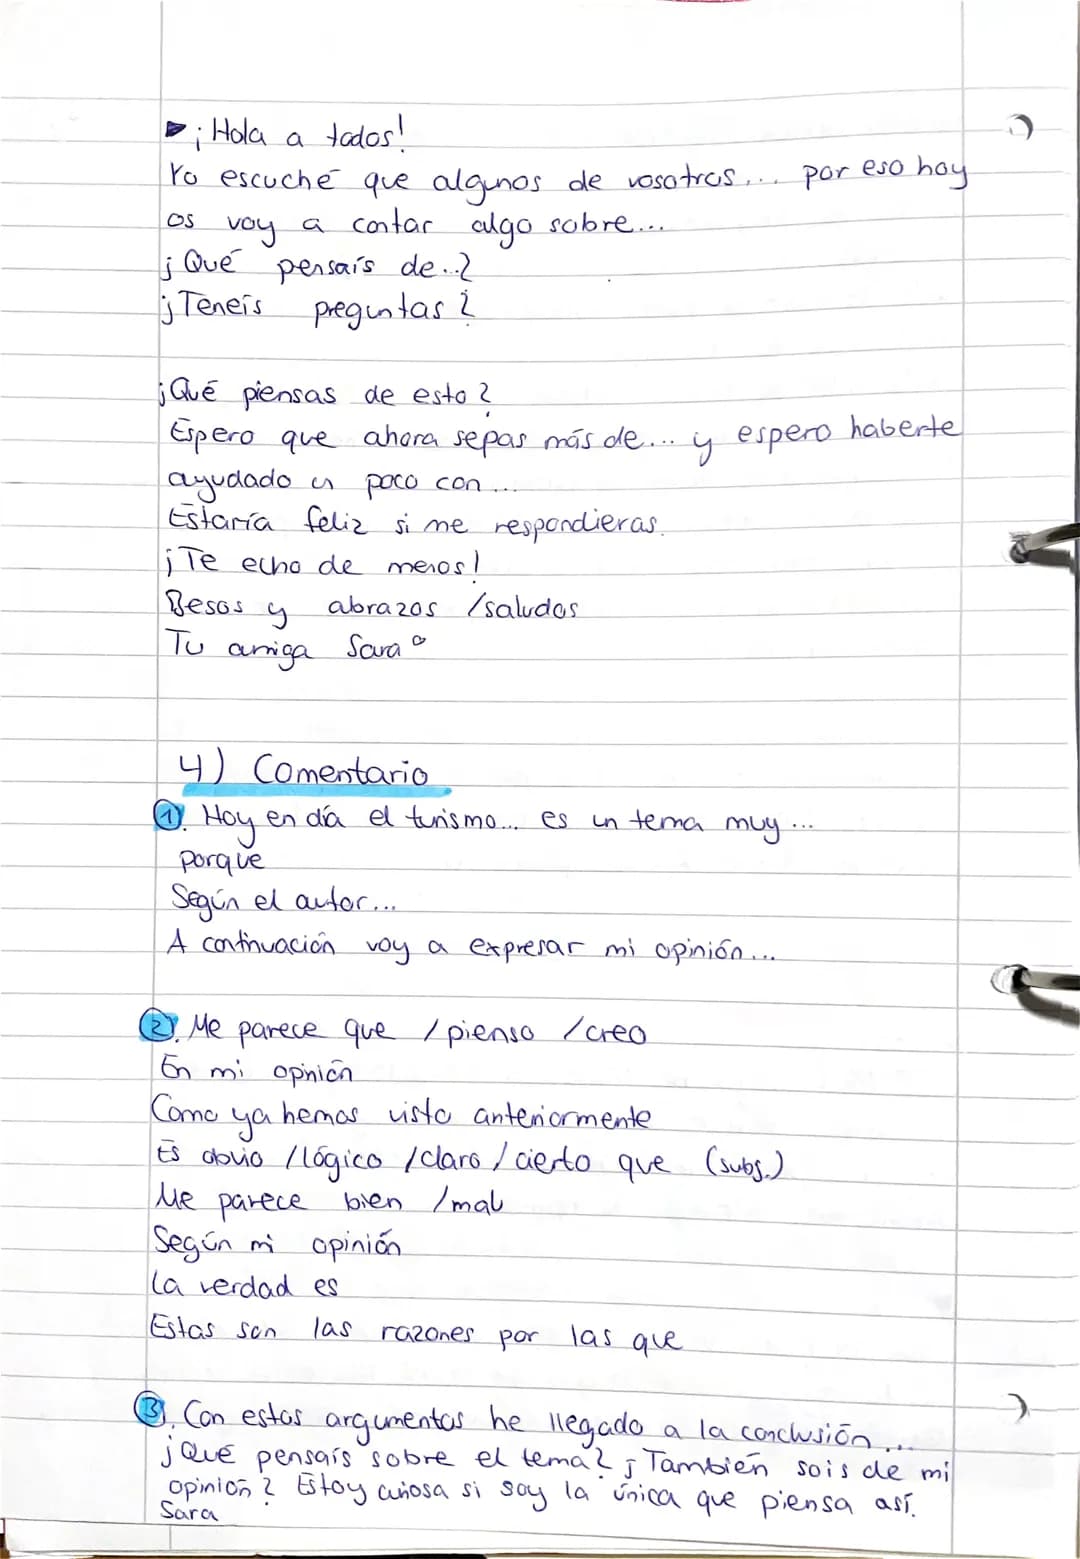 ▶¡Hola a todos!
Yo escuché que algunos de vosotros... por eso hoy
os voy a contar algo sobre...
¿Qué pensaís de..?
¿Teneís preguntas?
¿Qué piensas de esto?
Espero que ahora sepas más de... y espero haberte
ayudado un poco con...
Estaría feliz si me respondieras.
¡Te echo de menos!
Besos y abrazos /saludos
Tu amiga Sara
4) Comentario
1. Hoy en día el turismo... es un tema muy...
porque
Según el autor...
A continuación voy a expresar mi opinión...
2. Me parece que / pienso / creo
En mi opinión
Como ya hemos visto anteriormente
Es obvio / lógico / claro / cierto que (subs.)
Me parece bien / mal
Según mi opinión
La verdad es
Estas son las razones por las que
3. Con estos argumentos he llegado a la conclusión...
¿Qué pensaís sobre el tema? ¿También sois de mi
opinión? Estoy curiosa si soy la única que piensa así.
Sara